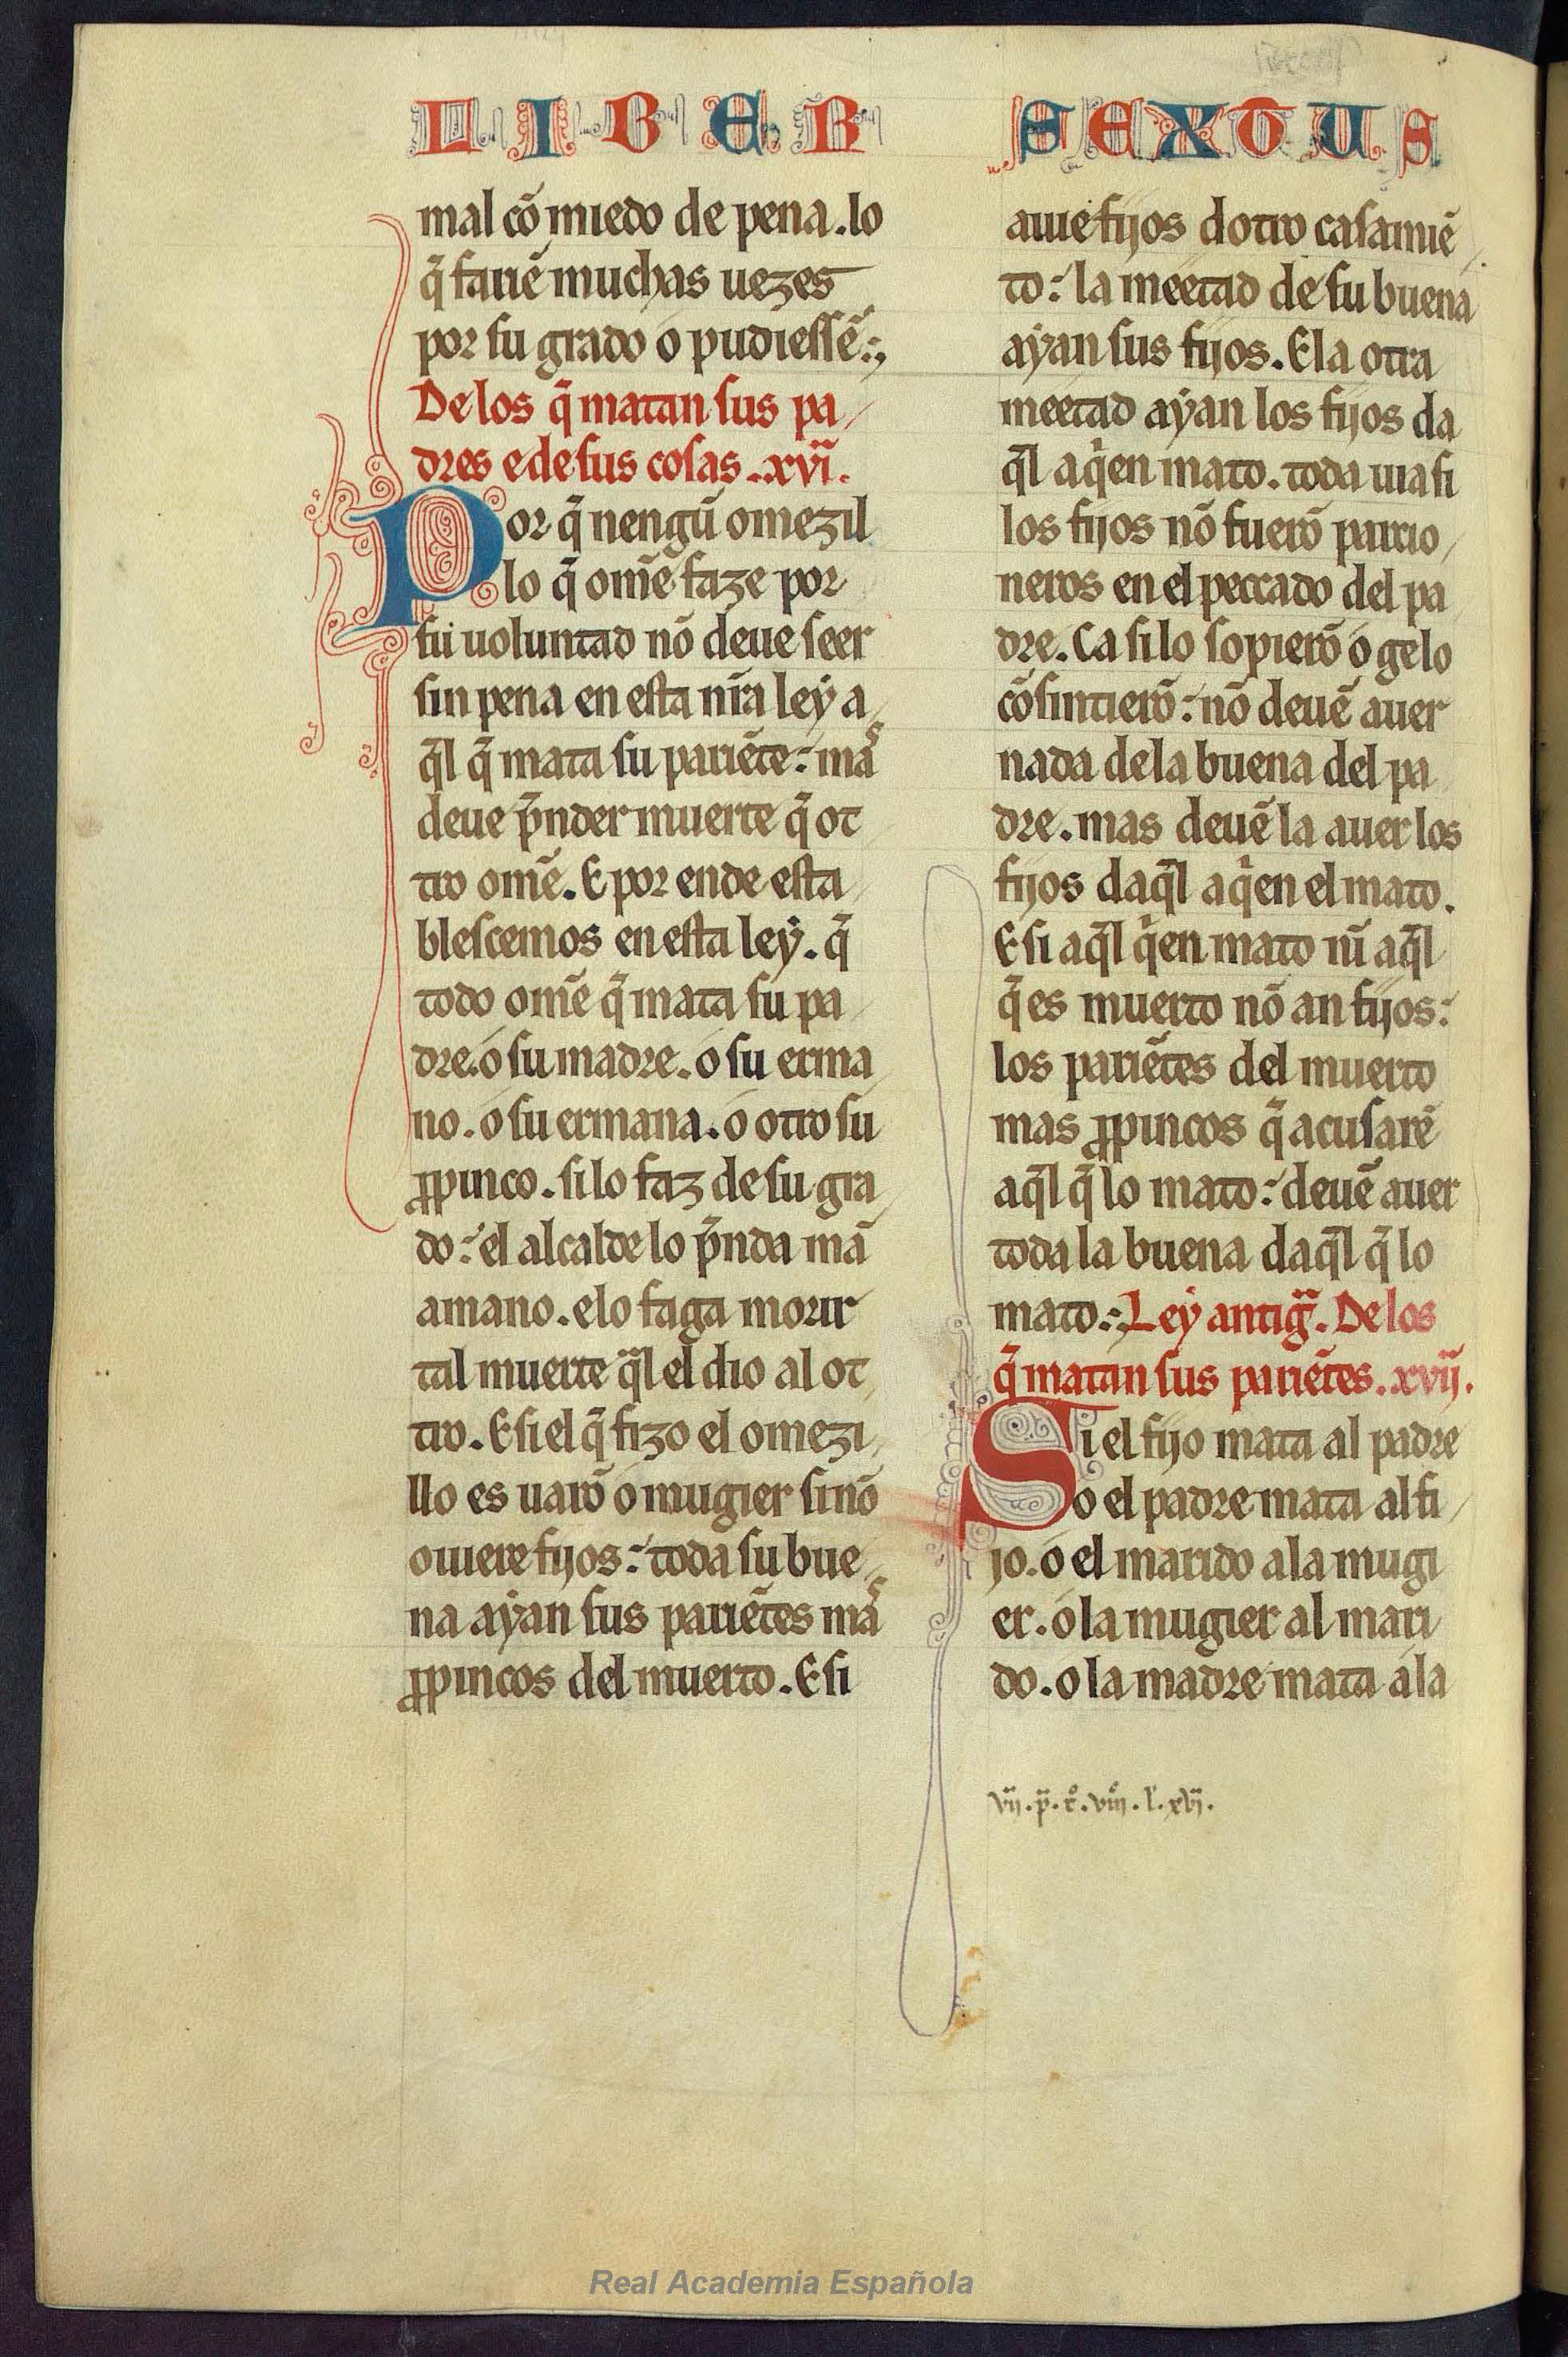 LIBER SEXTUS
mal cõ miedo de pena. lo
q̃ fariẽ muchas uezes
por su grado o pudiessẽ:,
De los q̃ matan sus pa
dres e de sus cosas. .xvi.
Por q̃ nengũ omezil
lo q̃ om̃e faze por
su uoluntad nõ deue seer
sin pena en esta nr̃a ley a
q̃l q̃ mata su pariẽte: mas
deue p̃nder muerte q̃ ot
tro om̃e. E por ende esta
blescemos en esta ley. q̃
todo om̃e q̃ mata su pa
dre. o su madre. o su erma
no. o su ermana. o otro su
ꝓpinco. si lo faz de su gra
do: el alcalde lo p̃nda mã
a mano. e lo faga morir
tal muerte q̃l el dio al ot
tro. E si el q̃ fizo el omezi
llo es uarõ o mugier si nõ
ouiere fijos: toda su bue
na ayan sus pariẽtes mas
ꝓpincos del muerto. E si
auie fijos dotro casamiẽ
to: la meetad de su buena
ayan sus fijos. E la otra
meetad ayan los fijos da
q̃l a qien mato. toda uia si
los fijos nõ fuerõ parcio
neros en el peccado del pa
dre. Ca si lo sopierõ o gelo
cõsintierõ: nõ deuẽ auer
nada de la buena del pa
dre. mas deuẽ la auer los
fijos daq̃l a qien el mato.
E si aq̃l qien mato nĩ aq̃l
q̃ es muerto nõ an fijos:
los pariẽtes del muerto
mas ꝓpincos q̃ acusarẽ
aq̃l q̃ lo mato: deuẽ auer
toda la buena daq̃l q̃ lo
mato:, Ley antig̃. De los
q̃ matan sus pariẽtes. xvij.
Si el fijo mata al padre
o el padre mata al fi
jo. o el marido a la mugi
er. o la mugier al mari
do. o la madre mata a la
vij. p̃. t̊. viij. l'. xvj.
Real Academia Española